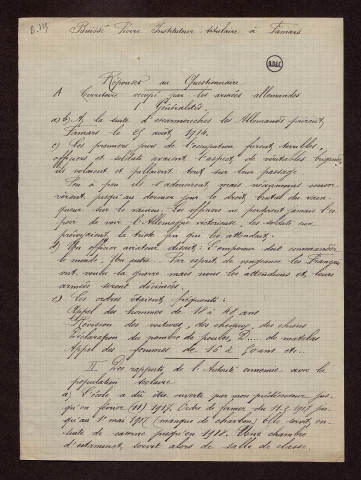 B. 315
Buisse Pierre Instituteur titulaire à Famars
BDIC
Réponses au Questionnaire
A Territoire occupé par les armées allemandes
I Généralités.
a) b) A la suite d'escarmouches les Allemands prirent
Famars le 25 août 1914.
c) Les premiers jours de l'occupation furent terribles,
officiers et soldats avaient l'aspect de véritables brigands,
ils volaient et pillaient tout sur leur passage.
Peu à peu ils s'adoucirent, mais néanmoins conser-
vèrent jusqu'au dernier jour le droit brutal du vain-
queur sur le vaincu. Les officiers ne perdirent jamais l'es-
poir de voir l'Allemagne victorieuse, les soldats eux
prévoyaient la triste fin qui les attendait.
d) Un officier aviateur disait: l'empereur doit commander
le monde. Un autre: Par esprit de vengeance les Français
ont voulu la guerre mais nous les attendions et leurs
armées seront décimées.
e) les ordres étaient fréquents:
Appel des hommes de 18 à 48 ans
Révision des voitures, des chevaux, des chiens
Déclaration du nombre de poules, de matelas
Appel des femmes de 16 à 50 ans etc.
II Des rapports de l'Autorité ennemie avec la
population scolaire
a) L'école a dû être ouverte par mon prédécesseur jus-
qu'en février 1917. Ordre de fermer du jus-
qu'au 1er mai 1917 (manque de charbon) elle servit en-
suite de caserne jusqu'en 1918. Une chambre
d'estaminet servit alors de salle de classe.